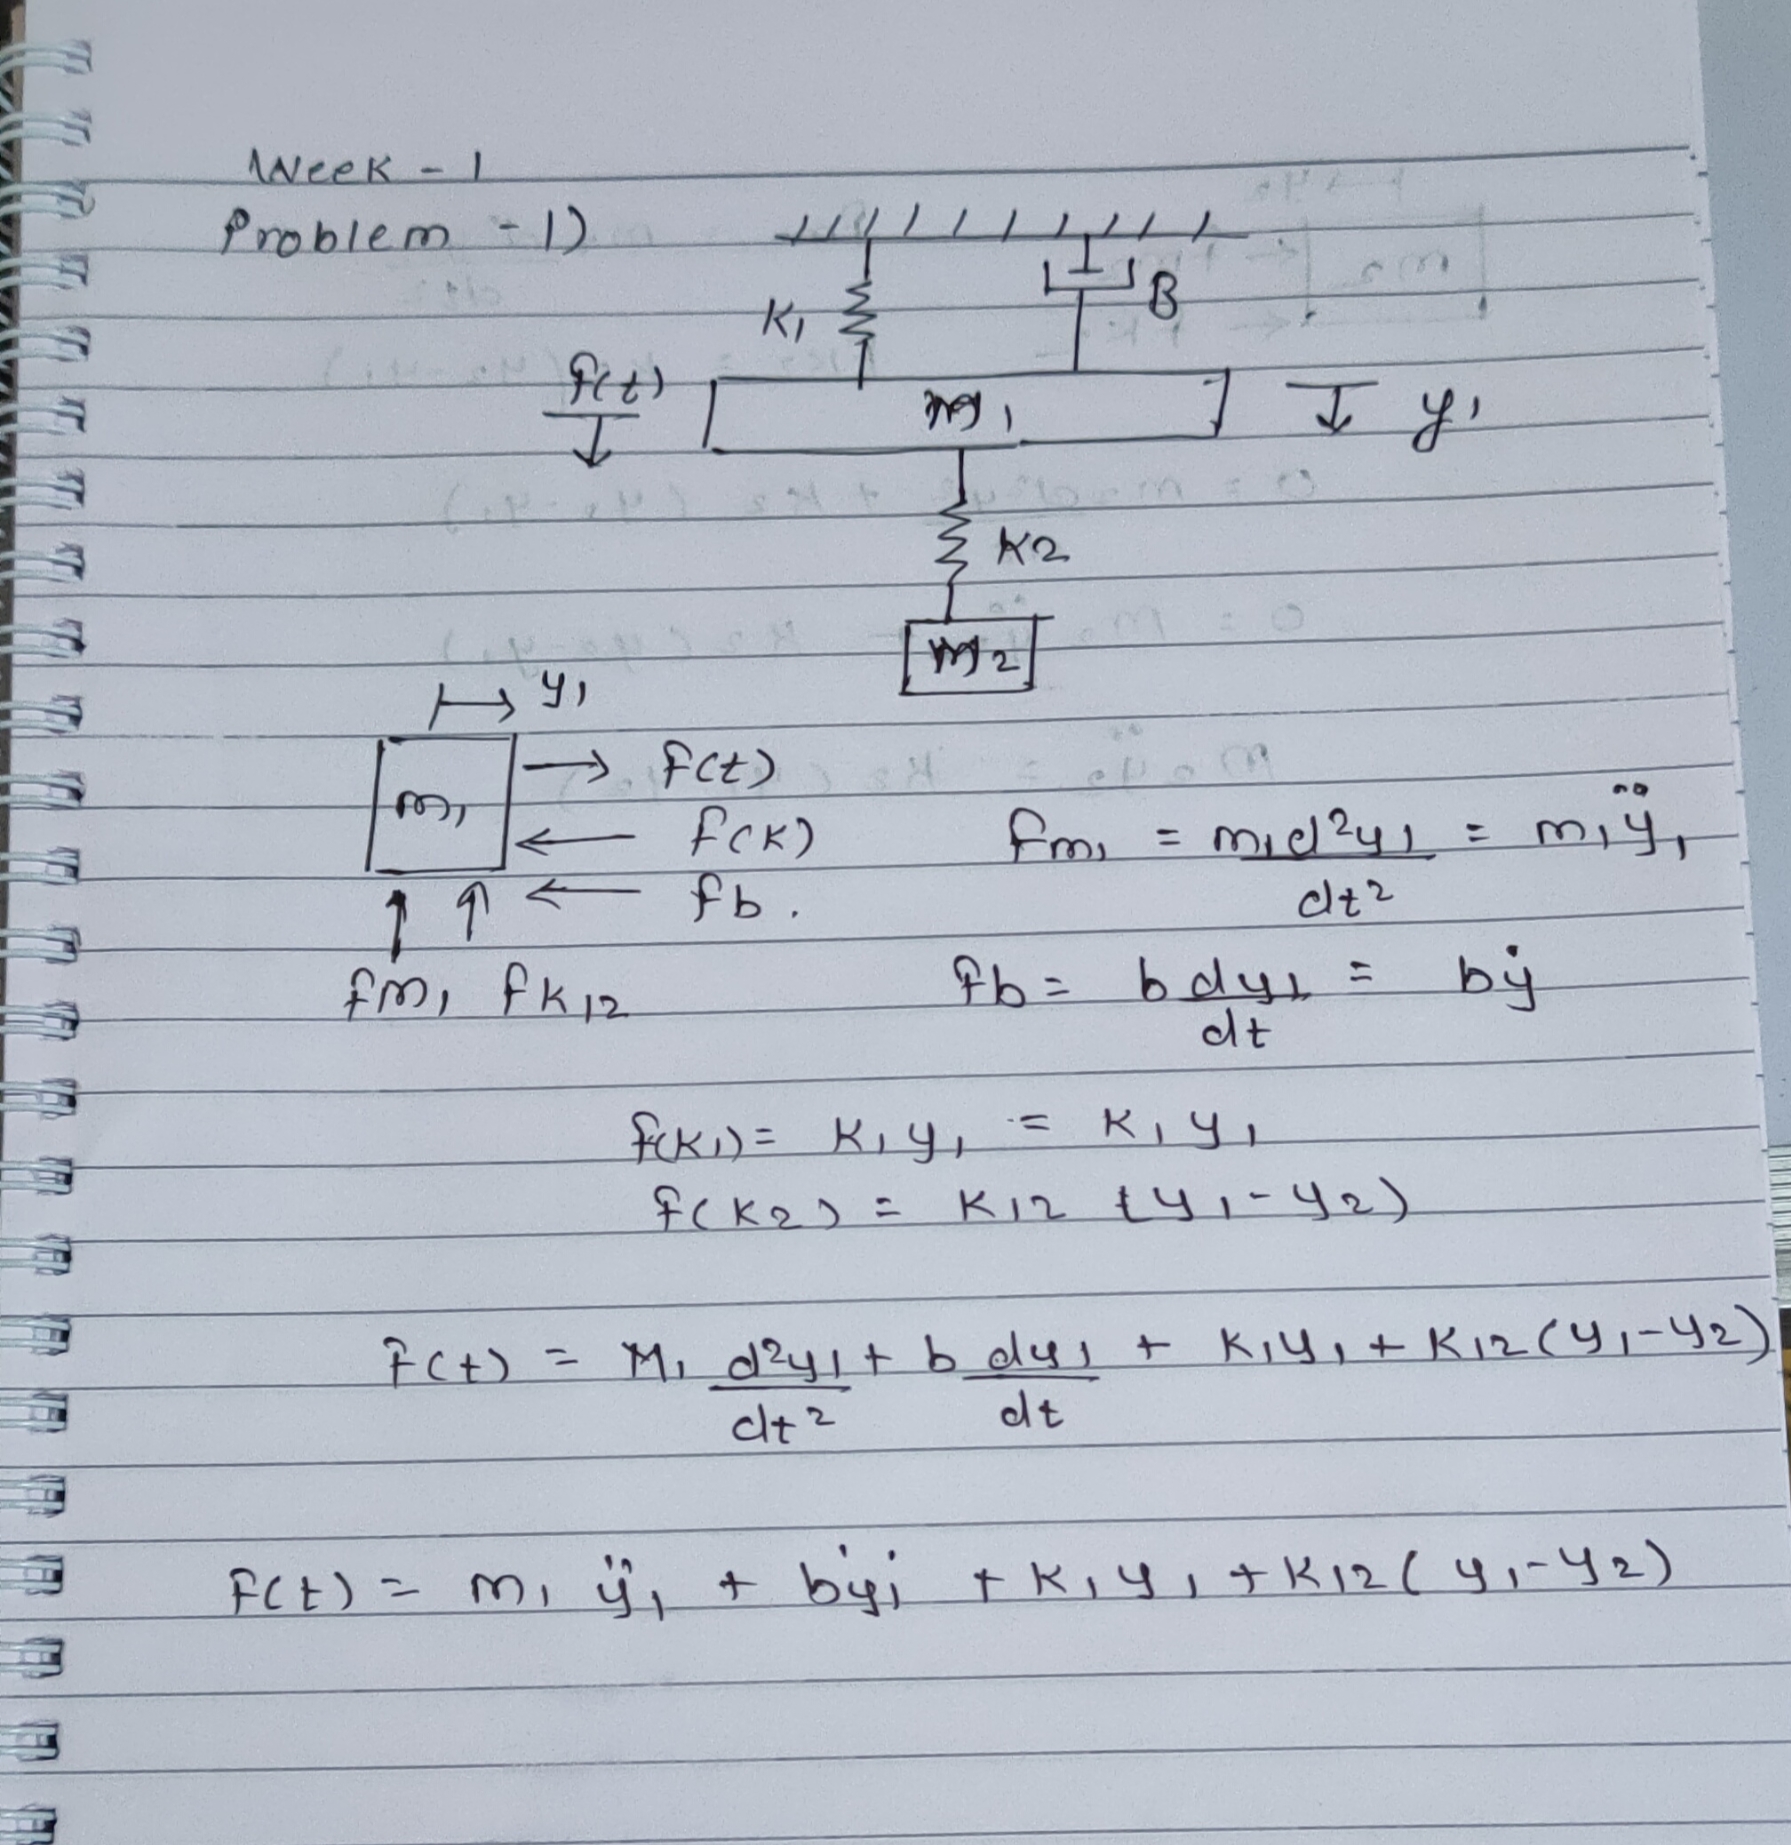 Week - 1
Problem - 1)
K1
B
f(t)
m1
y1
K2
m2
y1
m1
f(t)
f(K)
fb.
fm1 fK12
fm1 = m1d²y1 / dt² = m1ÿ1
fb = b dy1 / dt = bẏ
f(K1) = K1y1 = K1y1
f(K2) = K12 (y1-y2)
f(t) = M1 d²y1 / dt² + b dy1 / dt + K1y1 + K12(y1-y2)
F(t) = m1 ÿ1 + bẏ1 + K1y1 + K12(y1-y2)